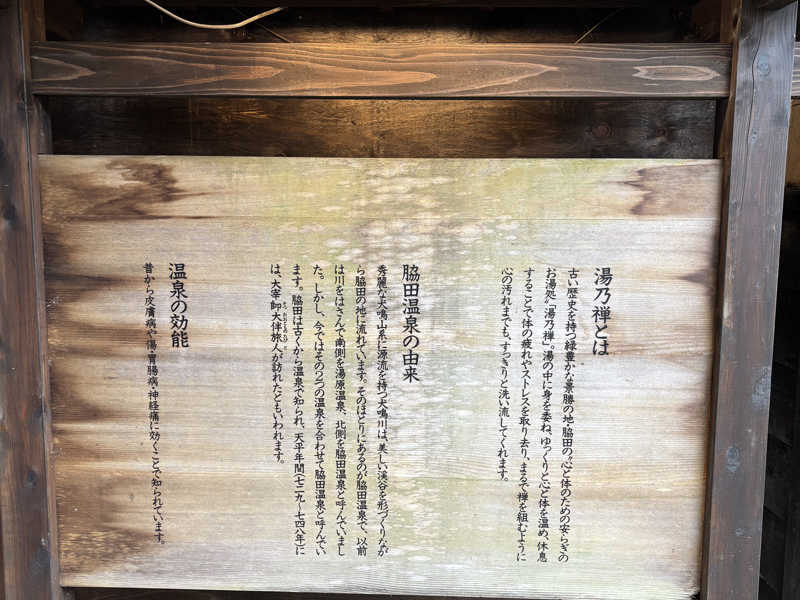 湯乃禅とは
古い歴史を持つ緑豊かな景勝の地・脇田の“心と体のための安らぎの
お湯処”「湯乃禅」。湯の中に身を委ね、ゆっくりと心と体を温め、休息
することで体の疲れやストレスを取り去り、まるで禅を組むように
心の汚れまでも、すっきりと洗い流してくれます。
脇田温泉の由来
秀麗な犬鳴山系に源流を持つ犬鳴川は、美しい渓谷を形づくりなが
ら脇田の地に流れています。そのほとりにあるのが脇田温泉で、以前
は川をはさんで南側を湯原温泉、北側を脇田温泉と呼んでいまし
た。しかし、今ではその2つの温泉を合わせて脇田温泉と呼んでい
ます。脇田は古くから温泉で知られ、天平年間(七二九〜七四八年)に
は、大宰帥大伴旅人が訪れたともいわれます。
温泉の効能
昔から皮膚病や傷・胃腸病・神経痛に効くことで知られています。